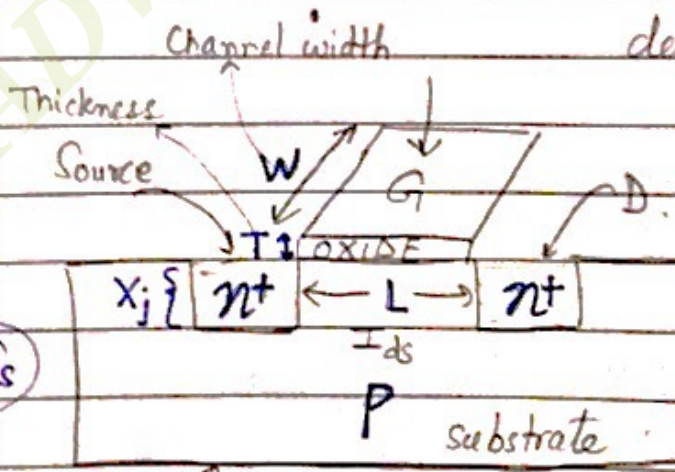 Channel width
de
Thickness
Source
W
G
D.
T OXIDE
Xj { n+ L n+
Ids
s
P
substrate
ADV